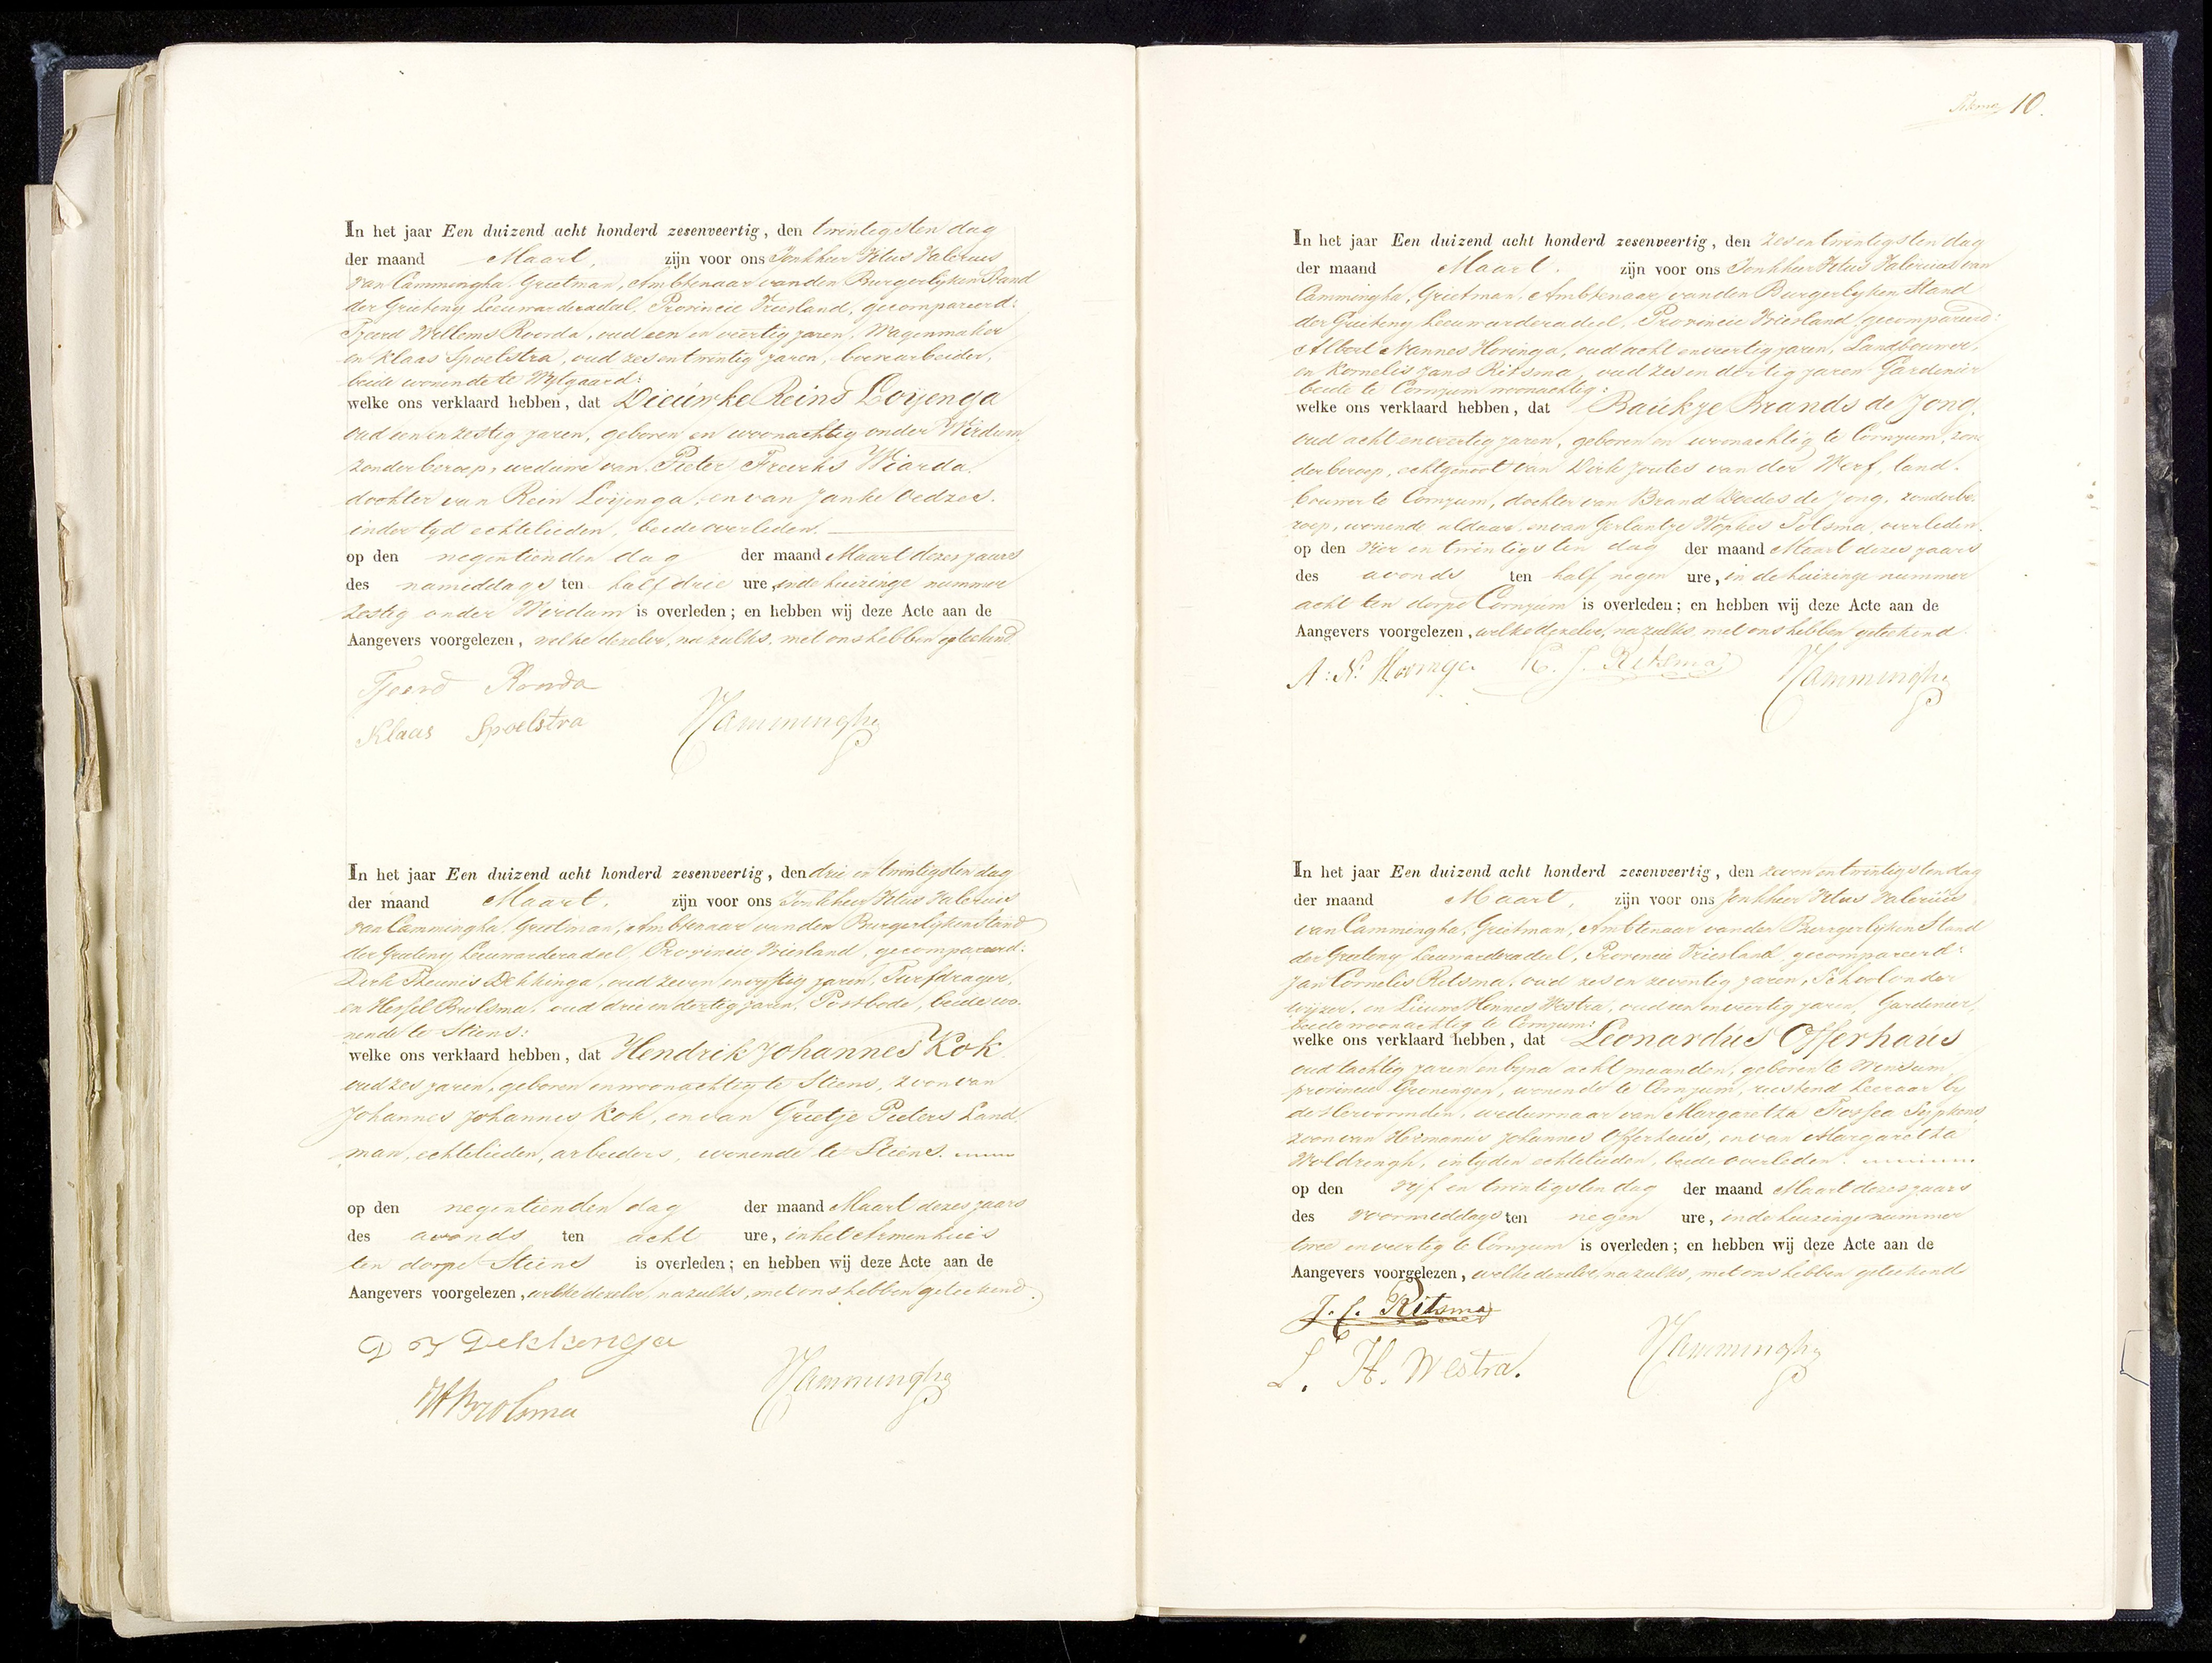 In het jaar Een duizend acht honderd zesenveertig, den twintigsten dag
der maand Maart, zijn voor ons Jonkheer Vitus Valerius
van Cammingha, Grietman, Ambtenaar van den Burgerlyken Stand
der Grieteny Leeuwarderadeel, Provincie Vriesland, gecompareerd:
Tjeerd Willems Roorda, oud een en veertig jaren, Wagenmaker
en Klaas Spoelstra, oud zes en twintig jaren, boerearbeider,
beide wonende te Wytgaard:
welke ons verklaard hebben, dat Dieuwke Reins Loijenga
oud een en zestig jaren, geboren en woonachtig onder Wirdum,
zonder beroep, weduwe van Pieter Freerks Wiarda,
dochter van Rein Loijenga, en van Janke Oedzes.
indertyd echtelieden, beide overleden.
op den negentienden dag der maand Maart dezes jaars
des namiddags ten half drie ure, in de huizinge nummer
zestig onder Wirdum is overleden; en hebben wij deze Acte aan de
Aangevers voorgelezen, welke dezelve, na zulks, met ons hebben geteekend.
Tjeerd Roorda
Klaas Spoelstra VVCammingha
In het jaar Een duizend acht honderd zesenveertig, den drie en twintigsten dag
der maand Maart, zijn voor ons Jonkheer Vitus Valerius
van Cammingha, Grietman, Ambtenaar van den Burgerlyken Stand
der Grieteny Leeuwarderadeel, Provincie Vriesland, gecompareerd:
Dirk Theunis Dekkinga, oud zeven en vyftig jaren, Turfdrager,
en Hessel Brolsma, oud drie en dertig jaren, Postbode, beide wo-
nende te Stiens:
welke ons verklaard hebben, dat Hendrik Johannes Kok
oud zes jaren, geboren en woonachtig te Stiens, zoon van
Johannes Johannes Kok, en van Grietje Pieters Land-
man, echtelieden, arbeiders, wonende te Stiens.
op den negentienden dag der maand Maart dezes jaars
des avonds ten acht ure, in het Armenhuis
ten dorpe Stiens is overleden; en hebben wij deze Acte aan de
Aangevers voorgelezen, welke dezelve, na zulks, met ons hebben geteekend.
D T Dekkinga
HBrolsma VVCammingha
10.
In het jaar Een duizend acht honderd zesenveertig, den zes en twintigsten dag
der maand Maart. zijn voor ons Jonkheer Vitus Valerius van
Cammingha, Grietman, Ambtenaar van den Burgerlyken Stand
der Grieteny Leeuwarderadeel, Provincie Vriesland, gecompareerd:
Albert Nannes Hovinga, oud acht en veertig jaren, Landbouwer,
en Kornelis Jans Ritsma, oud zes en dertig jaren Gardenier
beide te Cornjum woonachtig:
welke ons verklaard hebben, dat Baukje Brands de Jong,
oud acht en veertig jaren, geboren en woonachtig te Cornjum, zon-
der beroep, echtgenoot van Dirk Joules van der Werf, land-
bouwer te Cornjum, dochter van Brand Doedes de Jong, zonder be-
roep, wonende aldaar, en van Gerlantje Wopkes Tolsma, overleden.
op den vier en twintigsten dag der maand Maart dezes jaars
des avonds ten half negen ure, in de huizinge nummer
acht ten dorpe Cornjum is overleden; en hebben wij deze Acte aan de
Aangevers voorgelezen, welke dezelve, na zulks, met ons hebben geteekend.
A: N: Hovinga K. J. Ritsma VVCammingha
In het jaar Een duizend acht honderd zesenveertig, den zeven en twintigsten dag
der maand Maart, zijn voor ons Jonkheer Vitus Valerius
van Cammingha, Grietman, Ambtenaar van den Burgerlyken Stand
der Grieteny Leeuwarderadeel, Provincie Vriesland, gecompareerd:
Jan Cornelis Ritsma, oud zes en zeventig jaren, Schoolonder
wijzer, en Lieuwe Hennes Westra, oud een en veertig jaren, Gardenier,
beide woonachtig te Cornjum:
welke ons verklaard hebben, dat Leonardus Offerhaus
oud tachtig jaren en byna acht maanden, geboren te Winsum,
provincie Groningen, wonende te Cornjum, rustend Leeraar by
de Hervormden, weduwnaar van Margaretha Sypkens
zoon van Hermanus Johannes Offerhaus, en van Margaretha
Woldringh, in tyden echtelieden, beide overleden.
op den vijf en twintigsten dag der maand Maart dezes jaars
des voormiddags ten negen ure, in de huizinge nummer
twee en veertig te Cornjum is overleden; en hebben wij deze Acte aan de
Aangevers voorgelezen, welke dezelve, na zulks, met ons hebben geteekend
J. C. Ritsma
L. H. Westra. VVCammingha